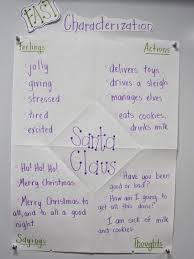 FAST
Characterization
Feelings
jolly
giving
stressed
tired
excited
Actions
delivers toys
drives a sleigh
manages elves
eats cookies,
drinks milk
Santa
Claus
Ho! Ho! Ho!
Merry Christmas
Merry Christmas to
all, and to all a good
night.
Sayings
Have you been
good or bad?
How am I going to
get all this done?
I am sick of milk
and cookies.
Thoughts